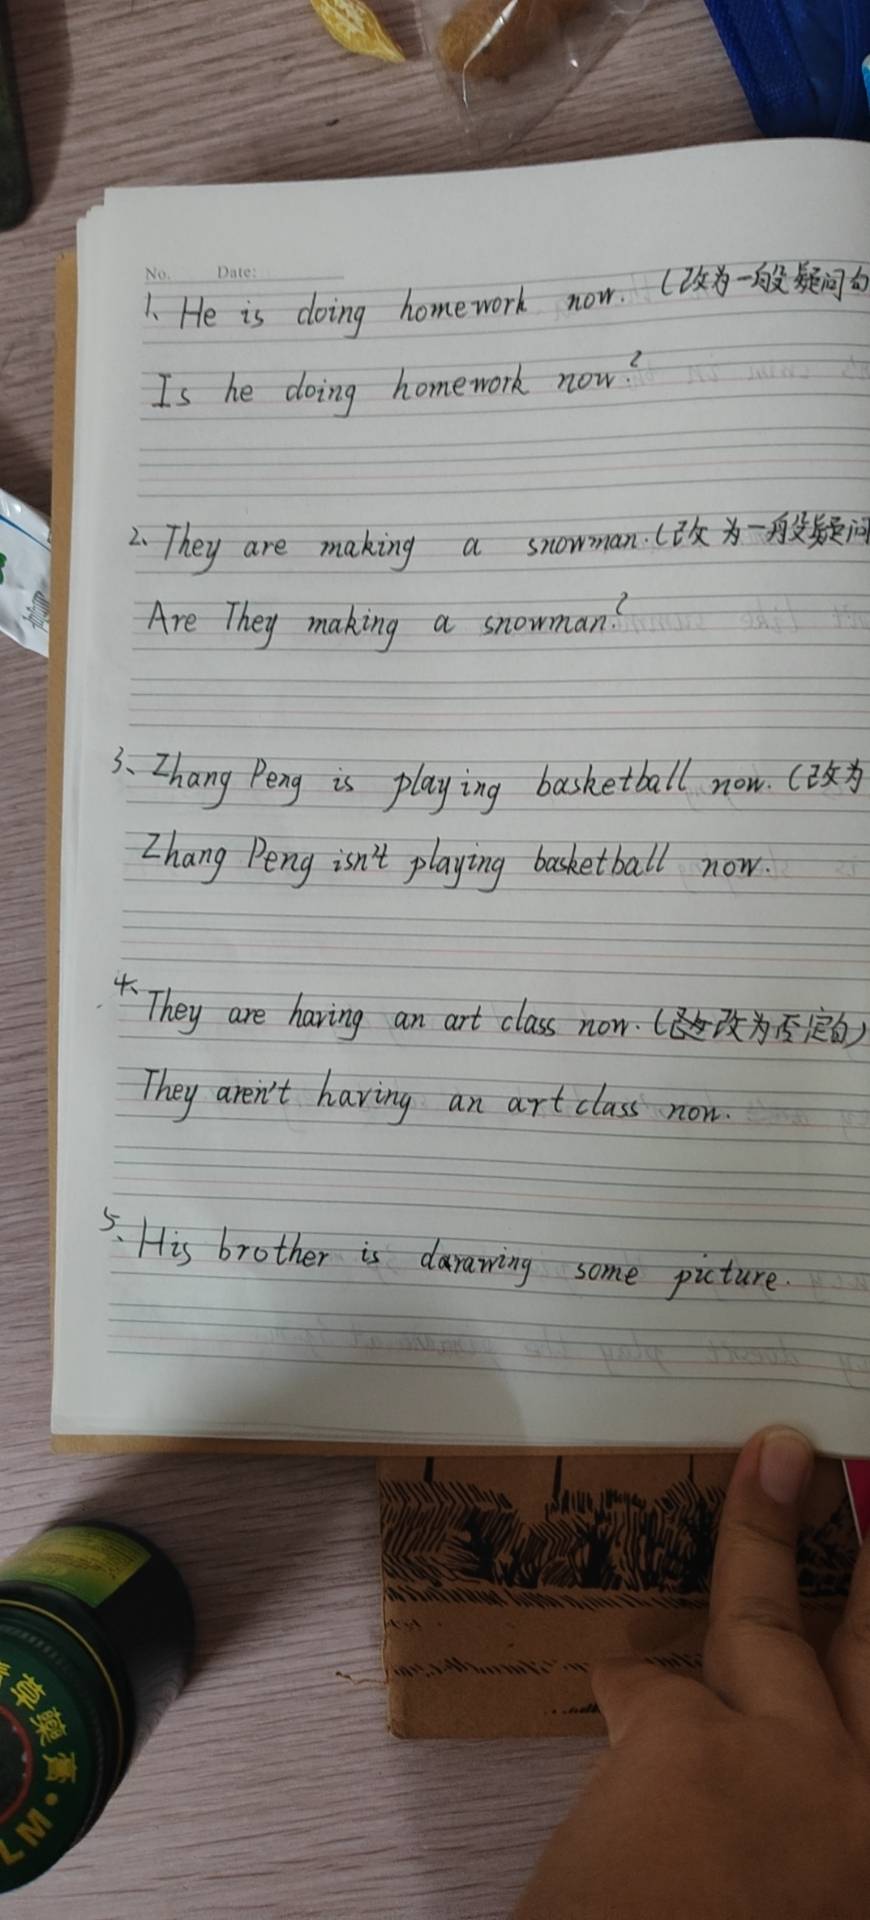 No. Date:
1、He is doing homework now.（改为一般疑问句
Is he doing homework now?
2、They are making a snowman.（改为一般疑问
Are They making a snowman?
3、Zhang Peng is playing basketball now.（改为
Zhang Peng isn't playing basketball now.
4、They are having an art class now.（改为否定句）
They aren't having an art class now.
5、His brother is darawing some picture.
草藥膏·